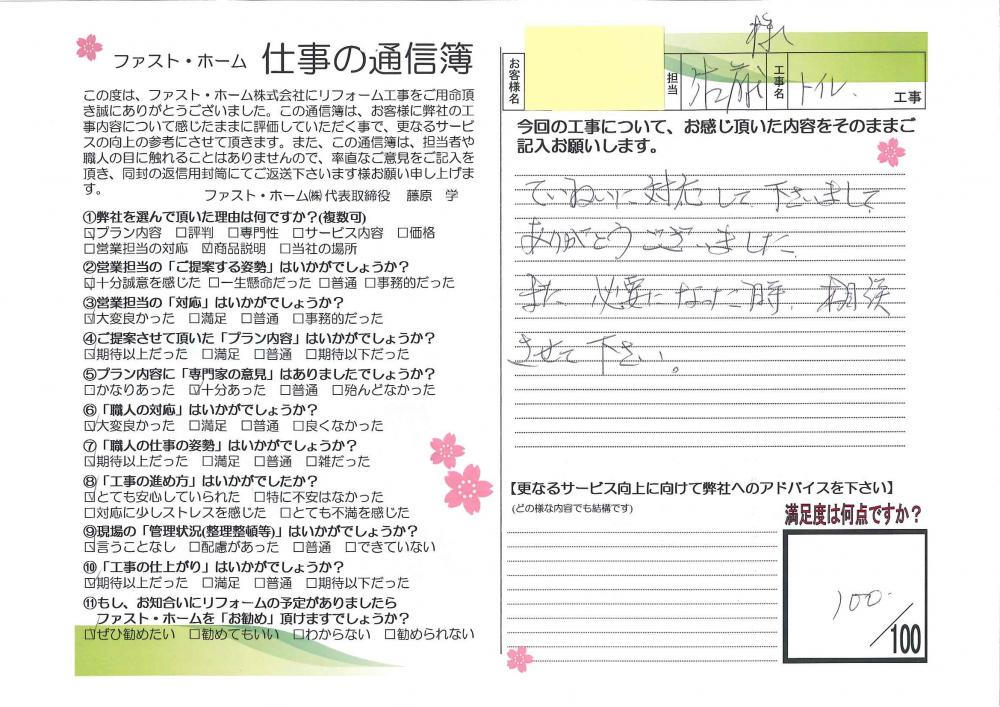 ファスト・ホーム 仕事の通信簿
この度は、ファスト・ホーム株式会社にリフォーム工事をご用命頂
き誠にありがとうございました。この通信簿は、お客様に弊社の工
事内容について感じたままに評価していただく事で、更なるサービ
スの向上の参考にさせて頂きます。また、この通信簿は、担当者や
職人の目に触れることはありませんので、率直なご意見をご記入を
頂き、同封の返信用封筒にてご返送下さいます様お願い申し上げま
す。
ファスト・ホーム㈱ 代表取締役 藤原 学
①弊社を選んで頂いた理由は何ですか?(複数可)
☑プラン内容 □評判 □専門性 □サービス内容 □価格
□営業担当の対応 ☑商品説明 □当社の場所
②営業担当の「ご提案する姿勢」はいかがでしょうか?
☑十分誠意を感じた □一生懸命だった □普通 □事務的だった
③営業担当の「対応」はいかがでしょうか?
☑大変良かった □満足 □普通 □事務的だった
④ご提案させて頂いた「プラン内容」はいかがでしょうか?
☑期待以上だった □満足 □普通 □期待以下だった
⑤プラン内容に「専門家の意見」はありましたでしょうか?
□かなりあった ☑十分あった □普通 □殆んどなかった
⑥「職人の対応」はいかがでしょうか?
☑大変良かった □満足 □普通 □良くなかった
⑦「職人の仕事の姿勢」はいかがでしょうか?
☑期待以上だった □満足 □普通 □雑だった
⑧「工事の進め方」はいかがでしたか?
☑とても安心していられた □特に不安はなかった
□対応に少しストレスを感じた □とても不満を感じた
⑨現場の「管理状況(整理整頓等)」はいかがでしょうか?
☑言うことなし □配慮があった □普通 □できていない
⑩「工事の仕上がり」はいかがでしょうか?
☑期待以上だった □満足 □普通 □期待以下だった
⑪もし、お知合いにリフォームの予定がありましたら
ファスト・ホームを「お勧め」頂けますでしょうか?
☑ぜひ勧めたい □勧めてもいい □わからない □勧められない
お客様名 様 担当 佐藤 工事名 トイレ 工事
今回の工事について、お感じ頂いた内容をそのままご
記入お願いします。
ていねいに対応して下さいまして
ありがとうございました
また必要になった時、相談
させて下さい。
【更なるサービス向上に向けて弊社へのアドバイスを下さい】
(どの様な内容でも結構です)
満足度は何点ですか?
100
/100